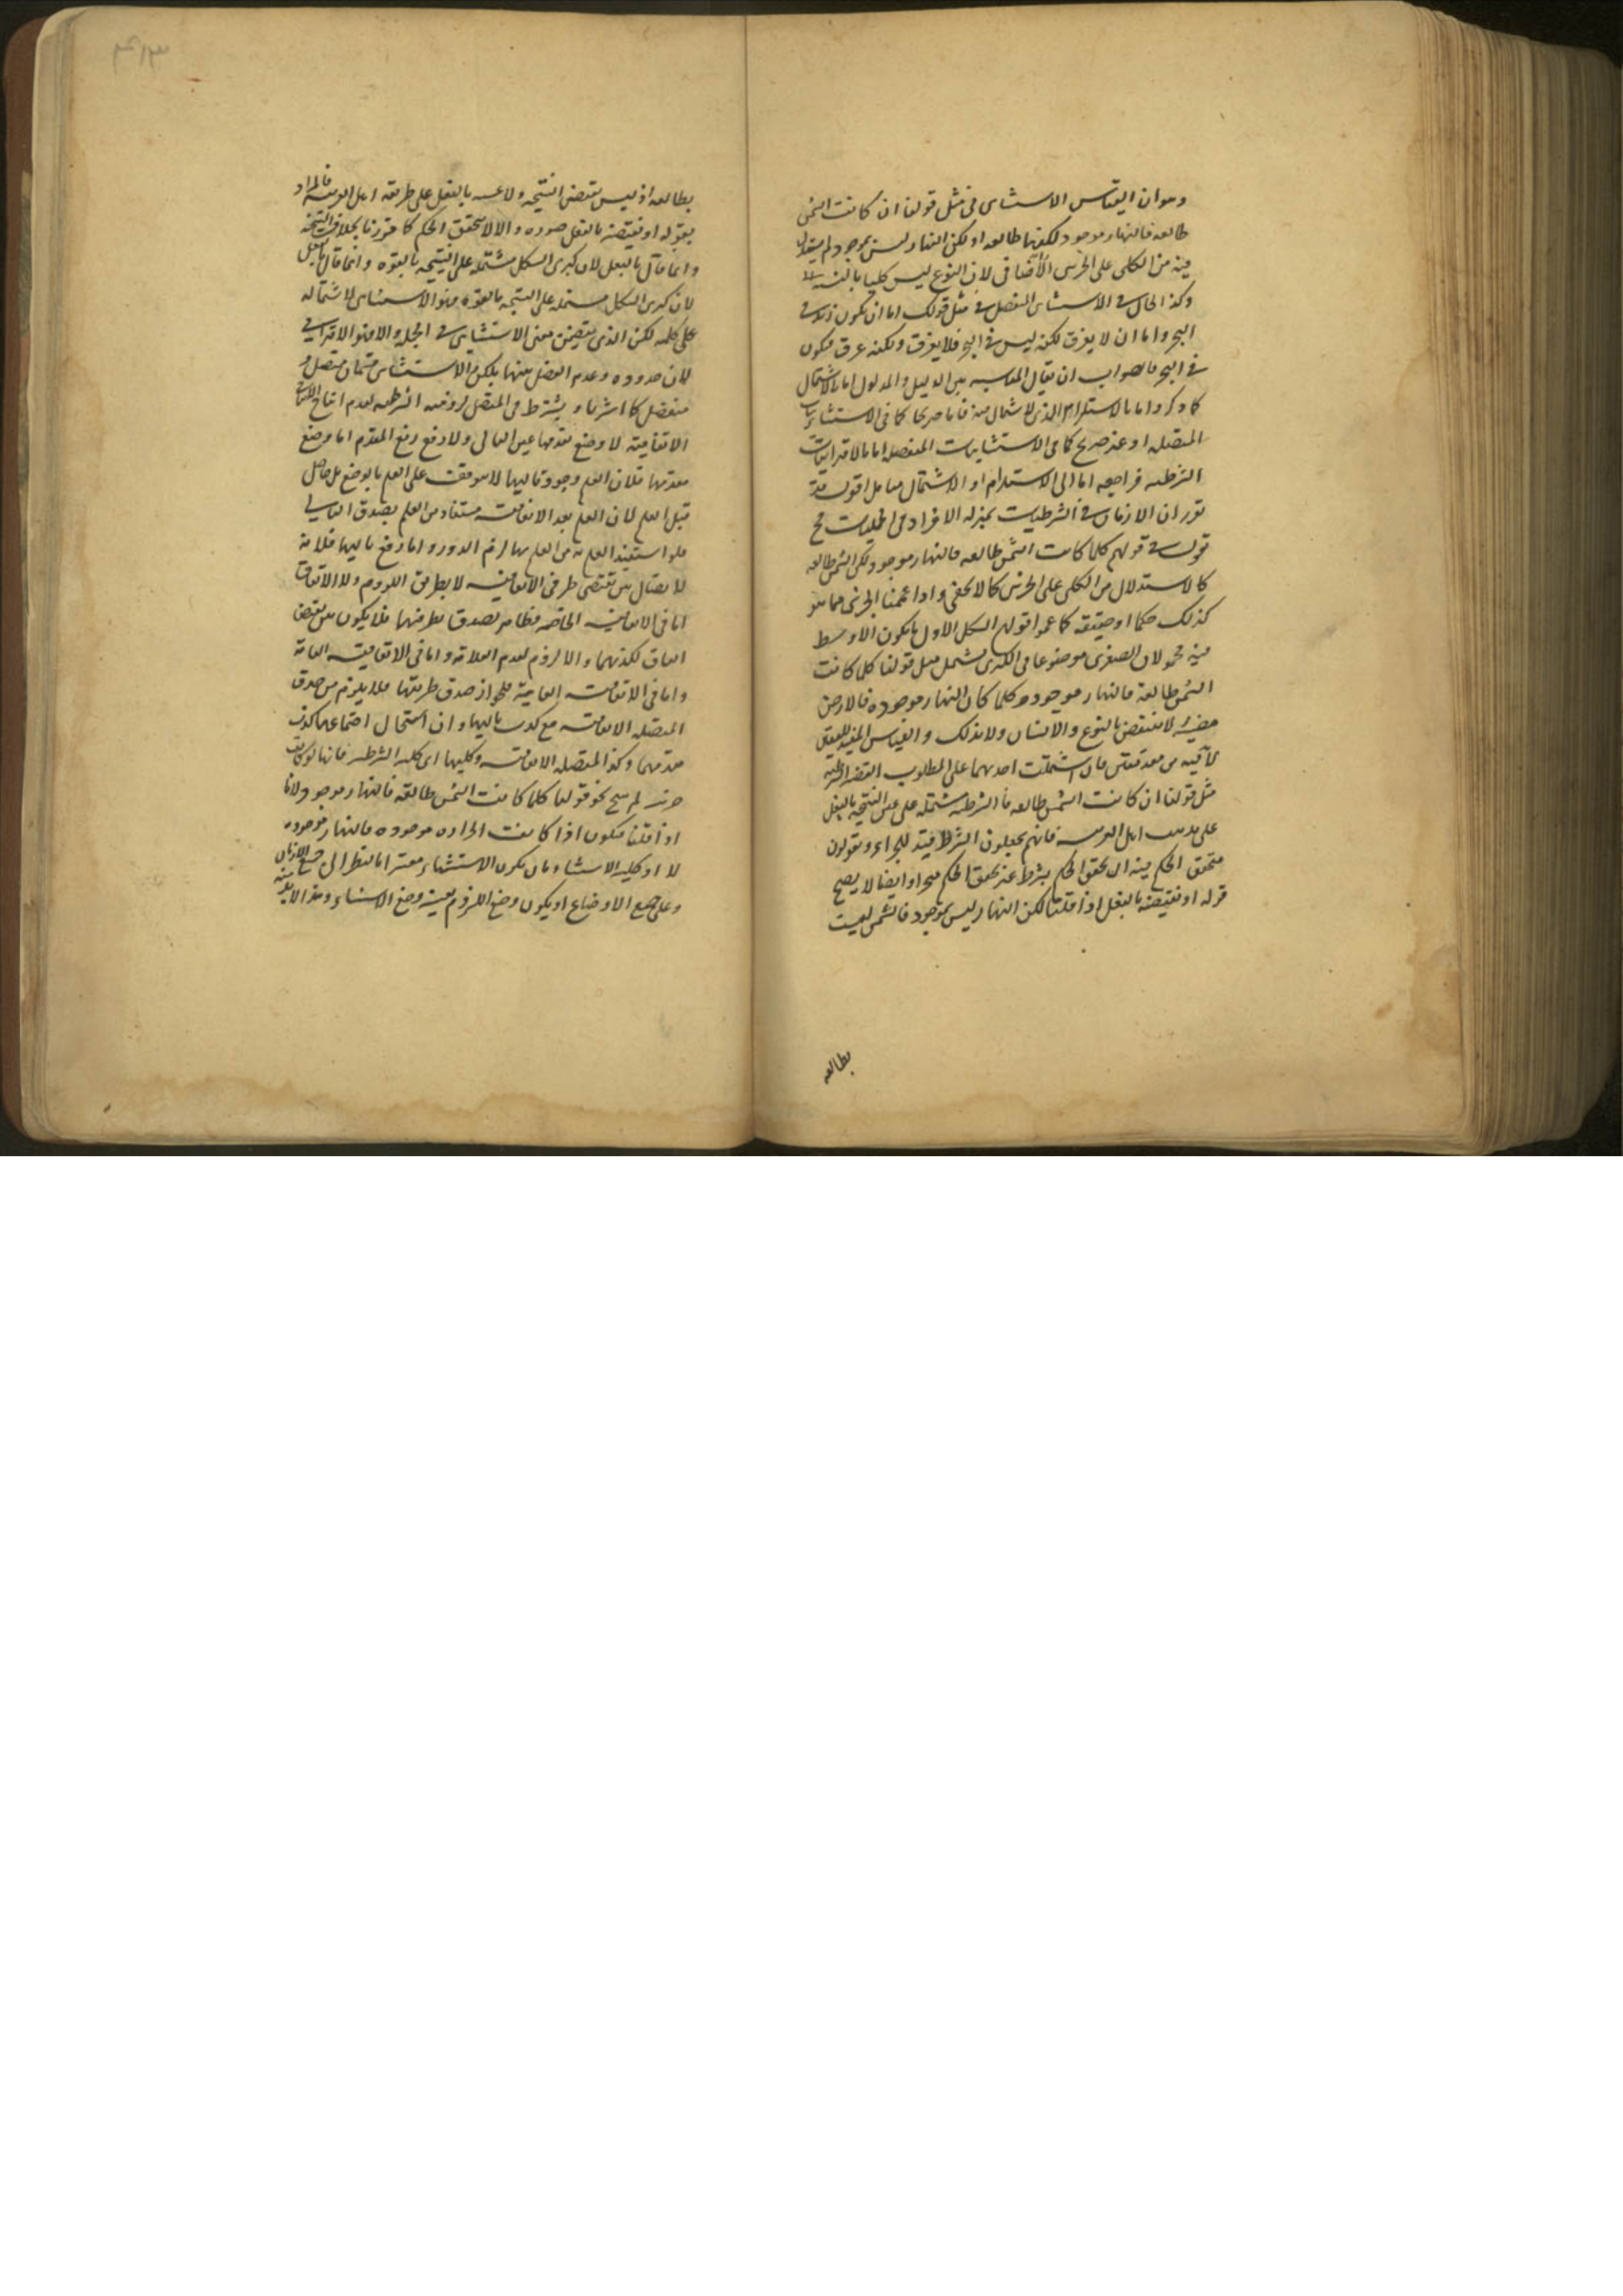 وهو ان القياس الاستثنائى فى مثل قولنا ان كانت الشمس
طالعه فالنهار موجود لكنها طالعه او لكن النهار ليس بموجود لم يستدل
فيه من الكلى على الجزئى الاضافى لان النوع ليس كليا بالنسبه
وكذا الحال فى الاستثنائى المنفصل فى مثل قولك اما ان يكون زيد فى
البحر واما ان لا يغرق لكنه ليس فى البحر فلا يغرق ولكنه غرق فيكون
فى البحر فالصواب ان يقال المناسبه بين الدليل والمدلول اما بالاشتمال
كما ذكر واما بالاستلزام الذى لا اشتمال فيه فاما صريحا كما فى الاستثنائيات
المتصله او غير صريح كما فى الاستثنائيات المنفصله اما الاقترانيات
الشرطيه فراجعه اما الى الاستلزام او الاشتمال تامل اقول قد
تقرر ان الازمان فى الشرطيات بمنزله الافراد فى الحمليات فح
قول فى قولهم كلما كانت الشمس طالعه فالنهار موجود لكن الشمس طالعه
كالاستدلال من الكلى على الجزئى كما لا يخفى واذا عممنا الجزئى مما هو
كذلك حكما او حقيقه كما عموا قولهم الشكل الاول ما يكون الاوسط
فيه محمولا فى الصغرى موضوعا فى الكبرى يشمل مثل قولنا كلما كانت
الشمس طالعة فالنهار موجود وكلما كان النهار موجوده فالارض
مضيئه لا ينتقض بالنوع والانسان ولا بذلك والقياس المفيد لليقين
لا فيه من مقدمتين فان اشتملت احديهما على المطلوب
مثل قولنا ان كانت الشمس طالعه فالشرطيه مشتمله على عين النتيجه بالفعل
على مذهب اهل العربيه فانهم يجعلون الشرط قيدا للجزاء ويقولون
يتحقق الحكم فيه اى تحقق الحكم بشرط عند تحقق الحكم وايضا لا يصح
قوله او نقيضه بالفعل اذا قلنا لكن النهار ليس بموجود فالشمس ليست
بطالعه
بطالعه اذ ليس نقيض النتيجه ولا عينه بالفعل على طريقه اهل العربيه فالمراد
بقوله او نقيضه بالفعل صوره والا لا يتحقق الحكم كما قررنا بخلاف النتيجه
وانما قال بالفعل لان كبرى الشكل مشتمله على النتيجه بالقوه وانما قال بالفعل
لان كبرى الشكل مشتمله على النتيجه بالقوه فهو الاستثنائى لاشتماله
على كلمه لكن الذى يتضمن معنى الاستثنائى فى الجمله والا فهو الاقترانى
لاقتران حدوده وعدم الفصل بينها بلكن والاستثنائى قسمان متصل و
منفصل كما اشرنا ويشترط فى المتصل لزوميه الشرطيه لعدم انتاج
الاتفاقية لا وضع مقدمها عين التالى ولا رفع رفع المقدم اما وضع
مقدمها فلان العلم بوجود تاليها لا يتوقف على العلم بالوضع بل حاصل
قبل العلم لان العلم بعد الاتفاقيه مستفاد من العلم بصدق التالى
فلو استفيد العلم به من العلم بها لزم الدور واما رفع تاليها فلانه
لا اتصال بين نقيضى طرفى الاتفاقيه لا بطريق اللزوم ولا الاتفاق
اما فى الاتفاقيه الخاصه فظاهر لصدق طرفيها فلا يكون بين نقيضى
اتفاق لكذبهما والا لزوم لعدم العلاقه واما فى الاتفاقيه العامه
واما فى الاتفاقيه العامية فلجواز صدق طرفيها فلا يلزم من صدق
المتصله الاتفاقيه مع كذب تاليها وان استحال اجتماعهما كذب
مقدمها وكذا المتصله الاتفاقيه وكليها اى كليه الشرطيه فانها لو كانت
جزئيه لم ينتج نحو قولنا كلما كانت الشمس طالعه فالنهار موجود ولانا
اذا قلنا قد يكون اذا كانت الحراره موجوده فالنهار موجوده
لا او كليه الاستثناء بان يكون الاستثناء معتبرا بالنظر الى جميع الازمان
وعلى جميع الاوضاع او يكون وضع اللزوم بعينه وضع الاستثناء وهذا لا بد منه